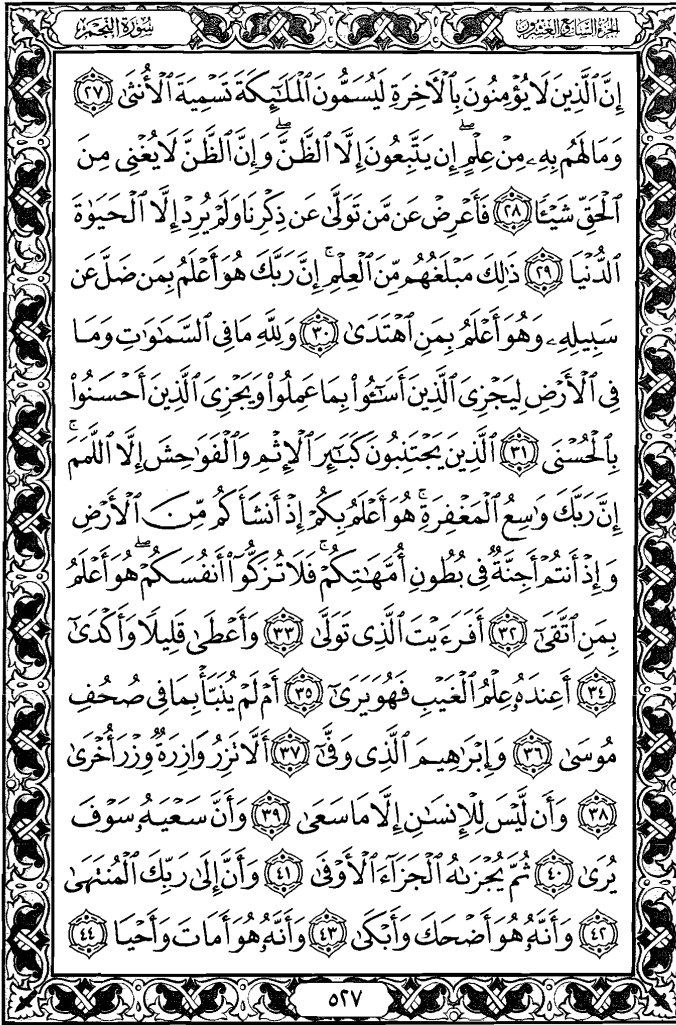 الجزء السابع والعشرون
سورة النجم
إِنَّ ٱلَّذِينَ لَا يُؤۡمِنُونَ بِٱلۡأٓخِرَةِ لَيُسَمُّونَ ٱلۡمَلَٰٓئِكَةَ تَسۡمِيَةَ ٱلۡأُنثَىٰ ٢٧
وَمَا لَهُم بِهِۦ مِنۡ عِلۡمٍۖ إِن يَتَّبِعُونَ إِلَّا ٱلظَّنَّۖ وَإِنَّ ٱلظَّنَّ لَا يُغۡنِي مِنَ
ٱلۡحَقِّ شَيۡـٔٗا ٢٨ فَأَعۡرِضۡ عَن مَّن تَوَلَّىٰ عَن ذِكۡرِنَا وَلَمۡ يُرِدۡ إِلَّا ٱلۡحَيَوٰةَ
ٱلدُّنۡيَا ٢٩ ذَٰلِكَ مَبۡلَغُهُم مِّنَ ٱلۡعِلۡمِۚ إِنَّ رَبَّكَ هُوَ أَعۡلَمُ بِمَن ضَلَّ عَن
سَبِيلِهِۦ وَهُوَ أَعۡلَمُ بِمَنِ ٱهۡتَدَىٰ ٣٠ وَلِلَّهِ مَا فِي ٱلسَّمَٰوَٰتِ وَمَا
فِي ٱلۡأَرۡضِ لِيَجۡزِيَ ٱلَّذِينَ أَسَٰٓـُٔواْ بِمَا عَمِلُواْ وَيَجۡزِيَ ٱلَّذِينَ أَحۡسَنُواْ
بِٱلۡحُسۡنَى ٣١ ٱلَّذِينَ يَجۡتَنِبُونَ كَبَٰٓئِرَ ٱلۡإِثۡمِ وَٱلۡفَوَٰحِشَ إِلَّا ٱللَّمَمَۚ
إِنَّ رَبَّكَ وَٰسِعُ ٱلۡمَغۡفِرَةِۚ هُوَ أَعۡلَمُ بِكُمۡ إِذۡ أَنشَأَكُم مِّنَ ٱلۡأَرۡضِ
وَإِذۡ أَنتُمۡ أَجِنَّةٞ فِي بُطُونِ أُمَّهَٰتِكُمۡۖ فَلَا تُزَكُّوٓاْ أَنفُسَكُمۡۖ هُوَ أَعۡلَمُ
بِمَنِ ٱتَّقَىٰٓ ٣٢ أَفَرَءَيۡتَ ٱلَّذِي تَوَلَّىٰ ٣٣ وَأَعۡطَىٰ قَلِيلٗا وَأَكۡدَىٰٓ
٣٤ أَعِندَهُۥ عِلۡمُ ٱلۡغَيۡبِ فَهُوَ يَرَىٰٓ ٣٥ أَمۡ لَمۡ يُنَبَّأۡ بِمَا فِي صُحُفِ
مُوسَىٰ ٣٦ وَإِبۡرَٰهِيمَ ٱلَّذِي وَفَّىٰٓ ٣٧ أَلَّا تَزِرُ وَازِرَةٞ وِزۡرَ أُخۡرَىٰ
٣٨ وَأَن لَّيۡسَ لِلۡإِنسَٰنِ إِلَّا مَا سَعَىٰ ٣٩ وَأَنَّ سَعۡيَهُۥ سَوۡفَ
يُرَىٰ ٤٠ ثُمَّ يُجۡزَىٰهُ ٱلۡجَزَآءَ ٱلۡأَوۡفَىٰ ٤١ وَأَنَّ إِلَىٰ رَبِّكَ ٱلۡمُنتَهَىٰ
٤٢ وَأَنَّهُۥ هُوَ أَضۡحَكَ وَأَبۡكَىٰ ٤٣ وَأَنَّهُۥ هُوَ أَمَاتَ وَأَحۡيَا ٤٤
٥٢٧